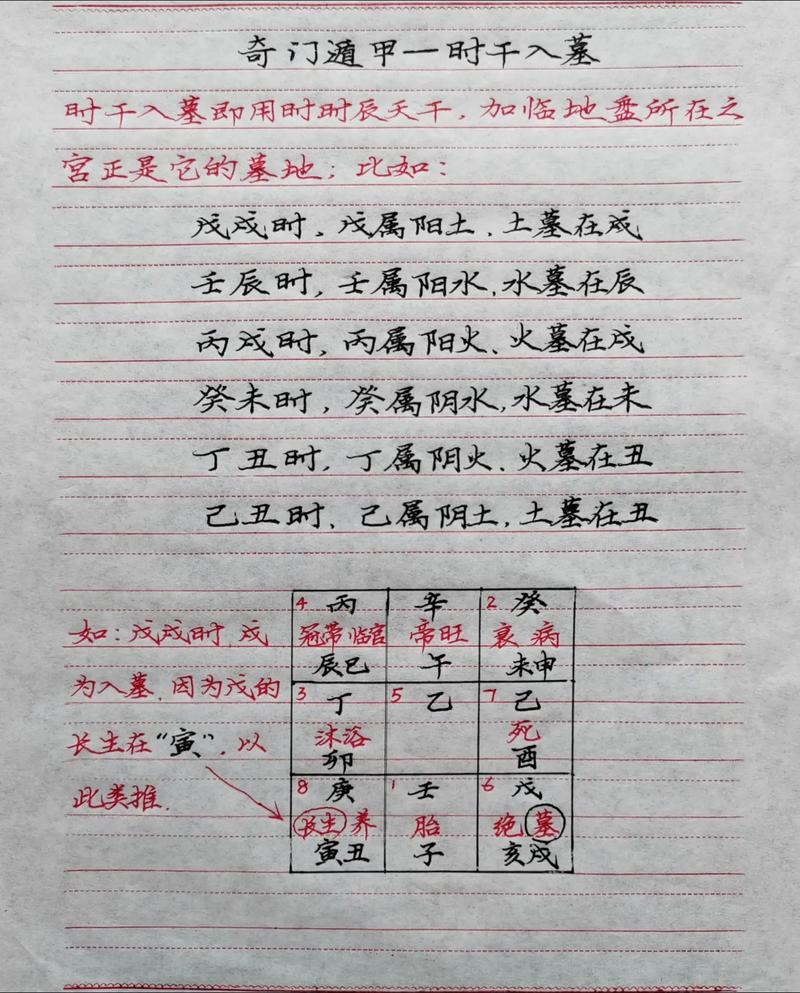 奇门遁甲一时干入墓
时干入墓即用时时辰天干，加临地盘所在之
宫正是它的墓地；比如：
戊戌时，戊属阳土、土墓在戌
壬辰时，壬属阳水，水墓在辰
丙戌时，丙属阳火、火墓在戌
癸未时，癸属阴水，水墓在未
丁丑时，丁属阴火、火墓在丑
己丑时、己属阴土，土墓在丑
如：戊戌时，戌
为入墓，因为戊的
长生在“寅”，以
此类推.
4 丙 辛 2 癸
冠带临官 帝旺 衰 病
辰巳 午 未申
3 丁 5 乙 7 己
沐浴 死
卯 酉
8 庚 1 壬 6 戊
长生 养 胎 绝 墓
寅丑 子 亥戌